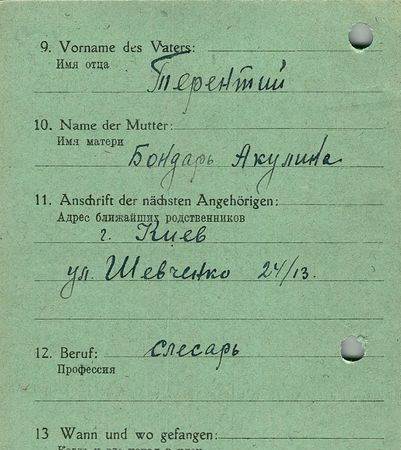 9. Vorname des Vaters:
Имя отца
Терентий
10. Name der Mutter:
Имя матери
Бондарь Акулина
11. Anschrift der nächsten Angehörigen:
Адрес ближайших родственников
г. Киев
ул. Шевченко 24/13.
12. Beruf: слесарь
Профессия
13 Wann und wo gefangen: